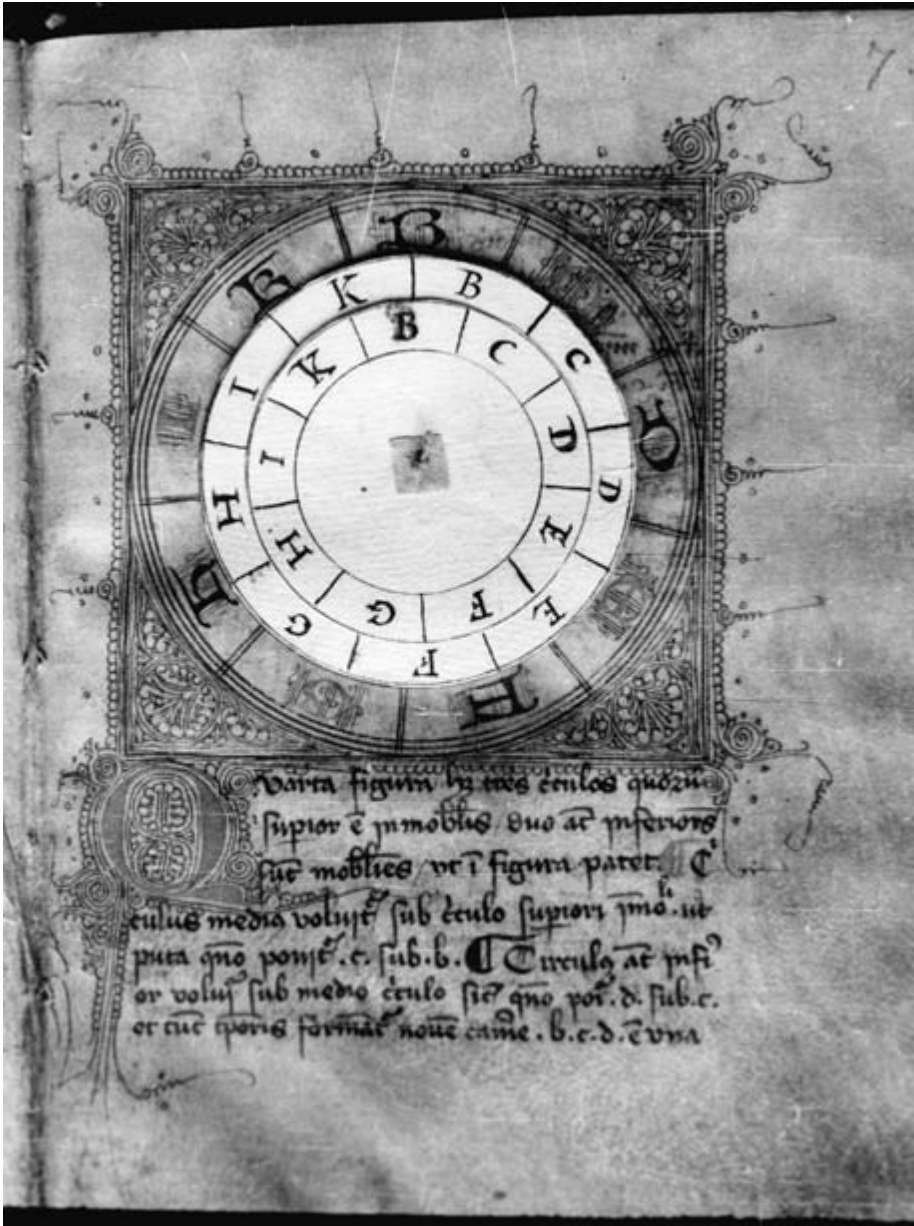 7.
B
D
H
K
B C D E F G H I K
B C D E F G H I K
Quarta figura hꝫ tres c̄culos quorū
supior ē inmoblis / duo aūt inferiors
sūt mobles / ut ī figura patet. C
culus medio voluitᷣ sub c̄culo supiori īmo. ut
puta qn̄o ponitᷣ .c. sub .b. ¶ Circulꝰ aūt infi
or voluiᷣ sub medio c̄culo sic̄ qn̄o poīᷣ .d. sub .c.
et tūc tp̄oris formātᷣ novē cam̄e .b.c.d. ē una